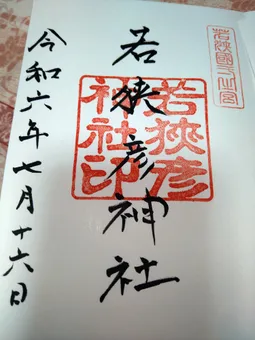 若狹國一之宮
若狹彦神社
若狹彦
神社印
令和六年七月十六日